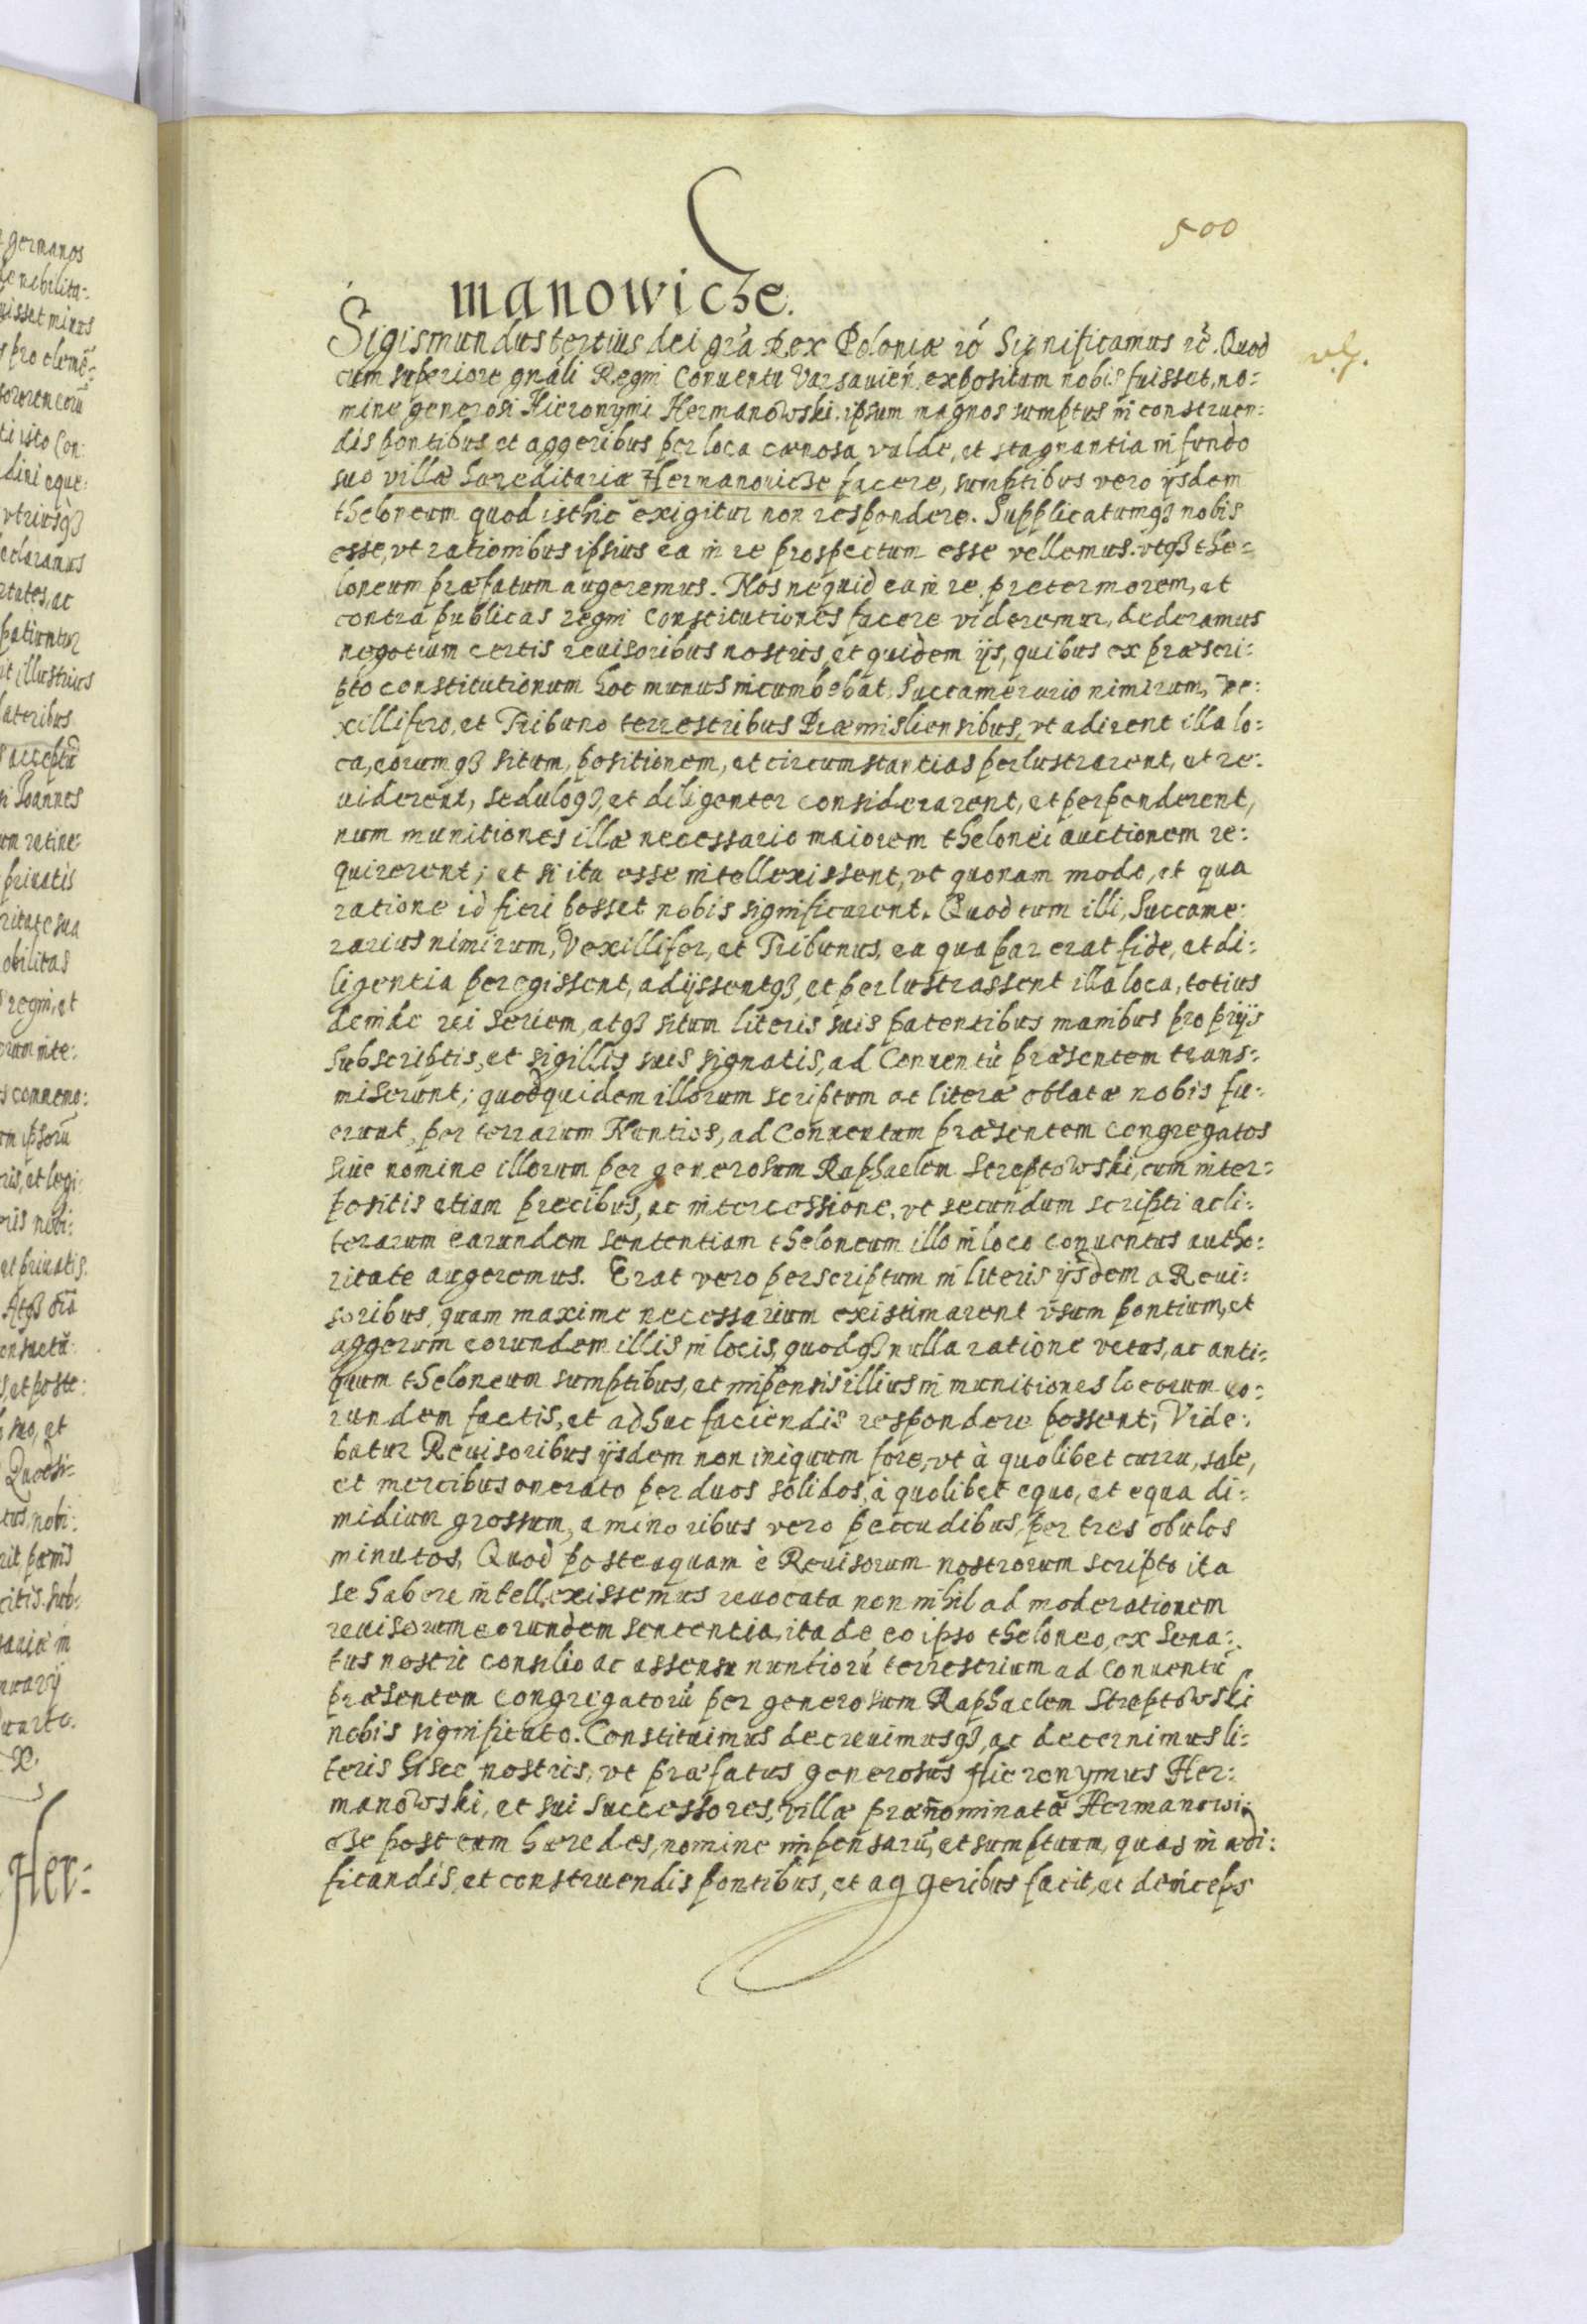 500
manowicze.
Sigismundus tertius dei gra Rex Poloniæ rc̃ Significamus rc̃. Quod
cum superiore gnali Regni Conuentu Varsauien. expositum nobis fuisset, no:
mine generosi Hieronymi Hermanowski. ipsum magnos sumptus in construen:
dis pontibus et aggeribus per loca cænosa valde, et stagnantia in fundo
suo villæ hæreditariæ Hermanowicze facere, sumptibus vero ijsdem
theloneum quod isthic exigitur non respondere. Supplicatumqȝ nobis
esse, vt rationibus ipsius ea in re prospectum esse vellemus. vtqȝ the=
loneum præfatum augeremus. Nos nequid ea in re preter morem, et
contra publicas regni constitutiones facere videremur, dederamus
negotium certis reuisoribus nostris, et quidem ijs, quibus ex præscri:
pto constitutionum hoc munus incumbebat. Succamerario nimirum, Ve:
xillifero, et Tribuno terrestribus Præmisliensibus, vt adirent illa lo:
ca, eorumqȝ situm, positionem, et circumstantias perlustrarent, et re:
uiderent, sedulogȝ, et diligenter considerarent, et perpenderent,
num munitiones illæ necessario maiorem thelonei auctionem re:
quirerent; et si ita esse intellexissent, vt quonam modo, et qua
ratione id fieri posset nobis significarent. Quod cum illi, Succame:
rarius nimirum, Vexillifer, et Tribunus, ea qua par erat fide, et di:
ligentia peregissent, adijssentqȝ, et perlustrassent illa loca, totius
deinde rei seriem, atqȝ situm literis suis patentibus manibus proprijs
subscriptis, et sigillis suis signatis, ad Conuentũ præsentem trans:
miserunt; quodquidem illorum scriptum ac literæ oblatæ nobis fu:
erunt, per terrarum Nuntios, ad Conuentum præsentem congregatos
siue nomine illorum per generosum Raphaelem Streptowski, cum inter:
positis etiam precibus, ac intercessione, vt secundum scripti ac li:
terarum earundem sententiam theloneum illo in loco conuentus autho:
ritate augeremus. Erat vero perscriptum in literis ijsdem a Reui:
soribus, quam maxime necessarium existimarent vsum pontium, et
aggerum eorundem illis in locis, quodqȝ nulla ratione vetus, ac anti:
quum theloneum sumptibus, et impensis illius in munitiones locorum eo:
rundem factis, et adhuc faciendis respondere possent; Vide:
batur Reuisoribus ijsdem non iniquum fore, vt à quolibet curru, sale,
et mercibus onerato per duos solidos, à quolibet equo, et equa di:
midium grossum, a minoribus vero peccudibus, per tres obulos
minutos, Quod posteaquam è Reuisorum nostrorum scripto ita
se habere intellexissemus reuocata non nihil ad moderationem
reuisorum eorundem sententia, ita de eo ipso theloneo, ex Sena:
tus nostri consilio ac assensu nuntiorũ terrestrium ad Conuentũ
præsentem congregatorũ per generosum Raphaelem Streptowski
nobis significato. Constituimus decreuimusqȝ, ac decernimus li:
teris hisce nostris, vt præfatus generosus Hieronymus Her:
manowski, et sui successores, villæ prænominatæ Hermanowi:
cze post eum hæredes, nomine impensarũ, et sumptuum, quos in ædi:
ficandis, et construendis pontibus, et aggeribus facit, et deinceps